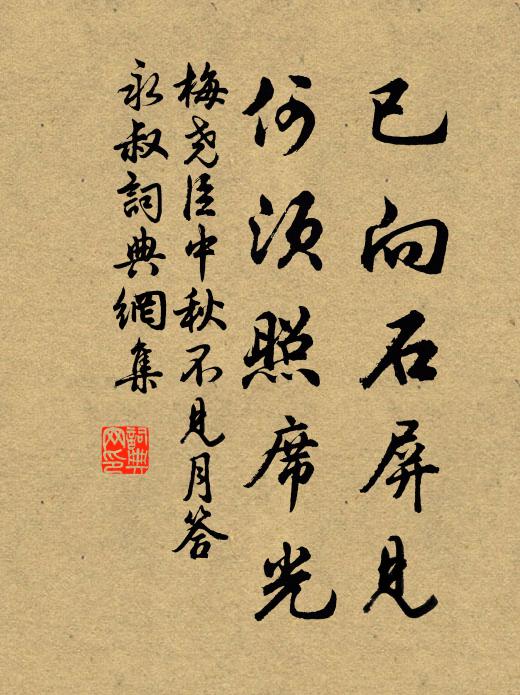 已向石屏見
何須照席光
梅堯臣中秋不見月答
永叔詞典網集
詞典
网印